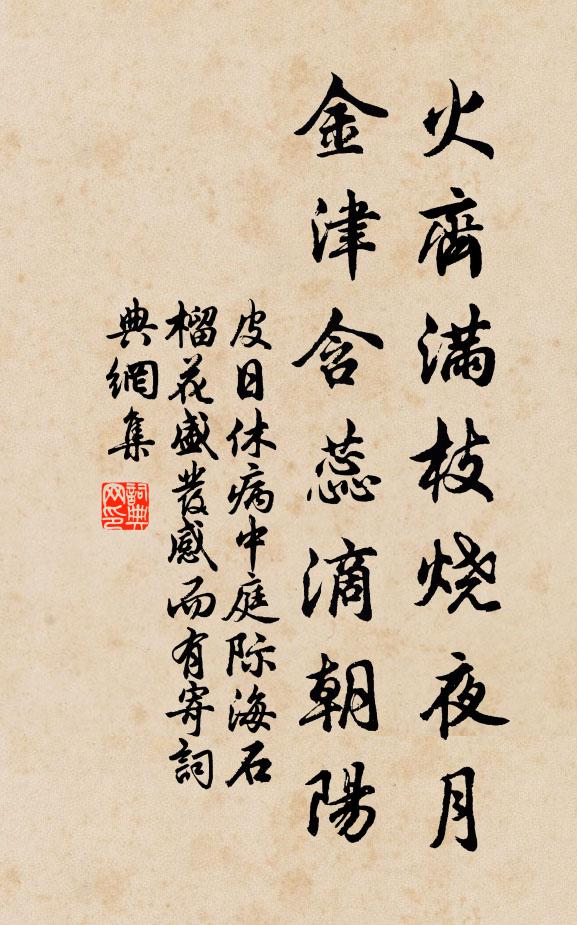 火齊滿枝燒夜月
金津含蕊滴朝陽
皮日休病中庭際海石
榴花盛發感而有寄詞
典網集
詞典网印